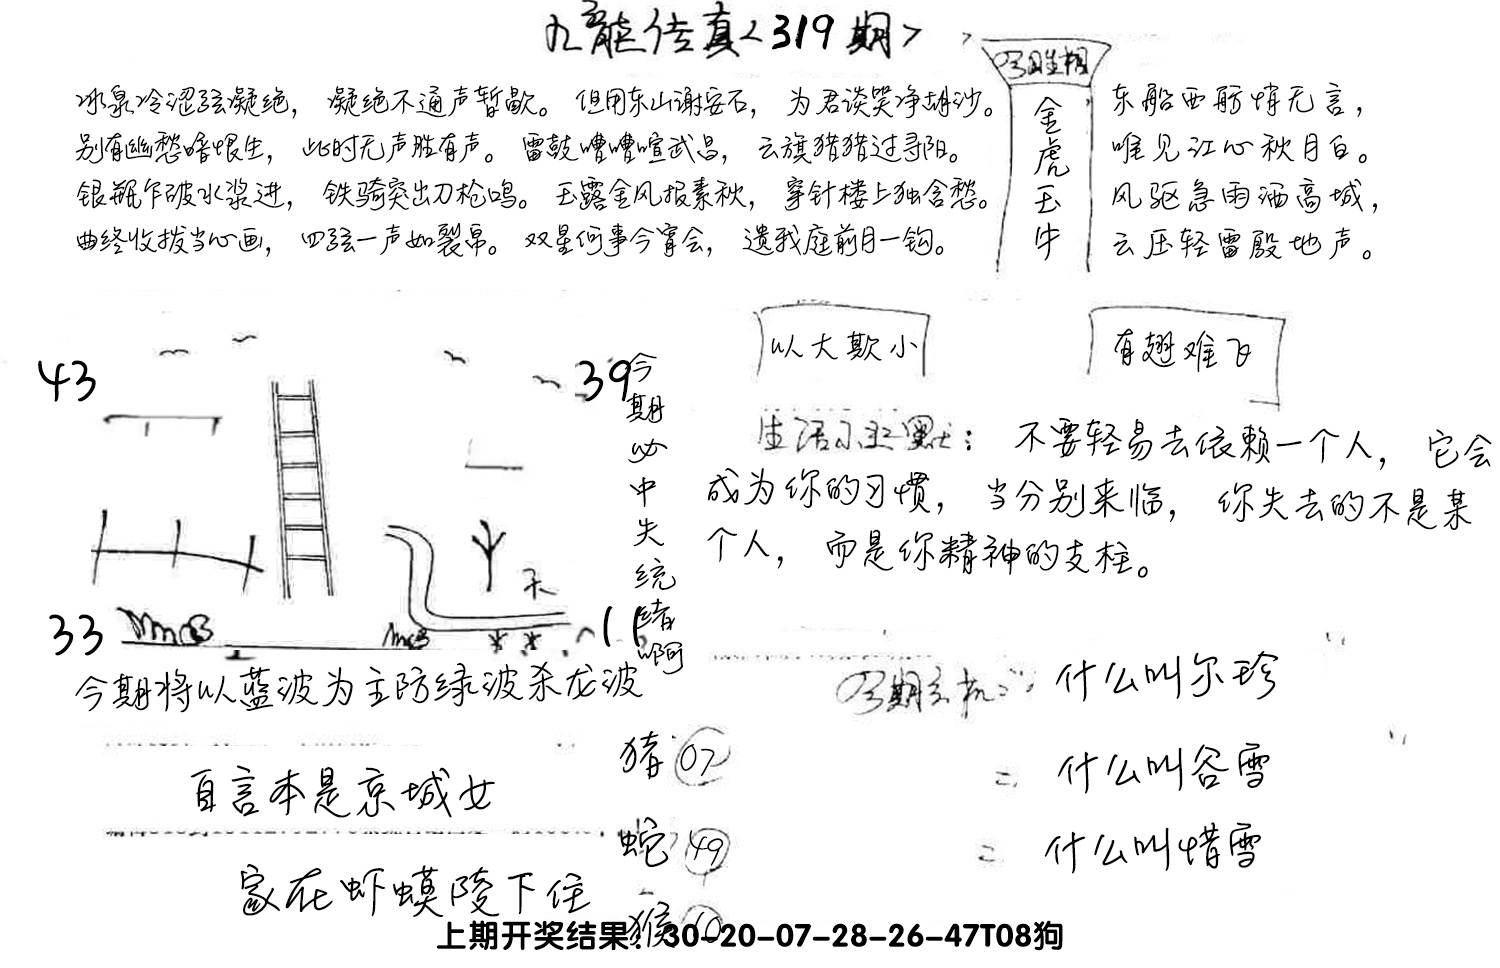 九龍传真<319期>
冰泉冷涩弦凝绝，凝绝不通声暂歇。但用东山谢安石，为君谈笑净胡沙。
别有幽愁暗恨生，此时无声胜有声。雷鼓嘈嘈喧武昌，云旗猎猎过寻阳。
银瓶乍破水浆迸，铁骑突出刀枪鸣。玉露金风报素秋，穿针楼上独含愁。
曲终收拨当心画，四弦一声如裂帛。双星何事今宵会，遗我庭前月一钩。
今期生相
金虎玉牛
东船西舫悄无言，
唯见江心秋月白。
风驱急雨洒高城，
云压轻雷殷地声。
43
39
33
11
今期必中失统绪啊
以大欺小
有翅难飞
生活小幽默：不要轻易去依赖一个人，它会
成为你的习惯，当分别来临，你失去的不是某
个人，而是你精神的支柱。
今期将以蓝波为主防绿波杀龙波
自言本是京城女
家在虾蟆陵下住
猪 07
蛇 49
猴 10
今期玄机：什么叫尔珍
= 什么叫谷雪
= 什么叫惜雪
上期开奖结果：30-20-07-28-26-47T08狗